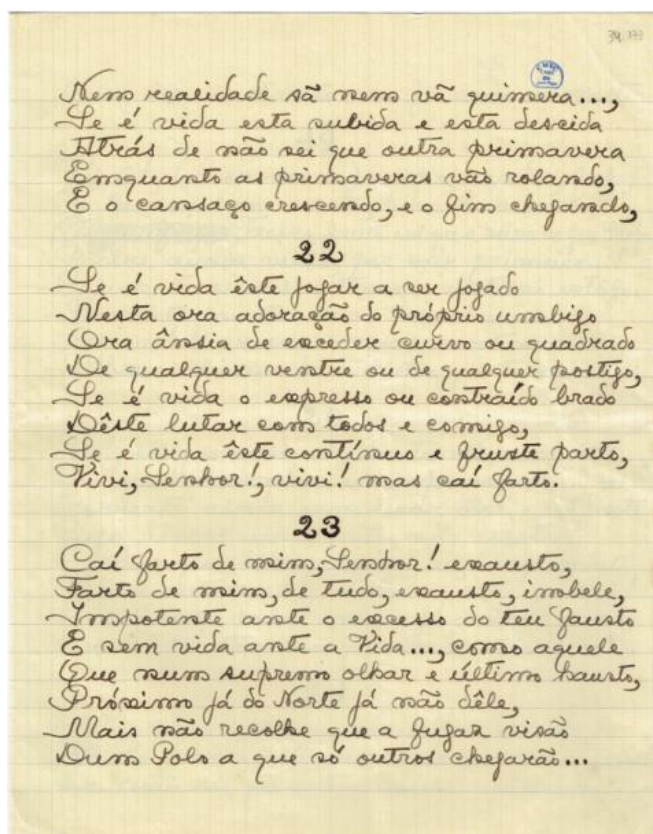 39.173
Nem realidade sã nem vã quimera...,
Se é vida esta subida e esta descida
Atrás de não sei que outra primavera
Emquanto as primaveras vão rolando,
E o cansaço crescendo, e o fim chegando,
22
Se é vida êste jogar a ser jogado
Nesta ora adoração do próprio umbigo
Ora ânsia de exceder curvo ou quadrado
De qualquer ventre ou de qualquer postigo,
Se é vida o expresso ou contraído brado
Dêste lutar com todos e comigo,
Se é vida êste contínuo e fruste parto,
Vivi, Senhor!, vivi! mas caí farto.
23
Caí farto de mim, Senhor! exausto,
Farto de mim, de tudo, exausto, imbele,
Impotente ante o excesso do teu fausto
E sem vida ante a Vida..., como aquele
Que num supremo olhar e último hausto,
Próximo já do Norte já não dêle,
Mais não recolhe que a fugaz visão
Dum Polo a que só outros chegarão...